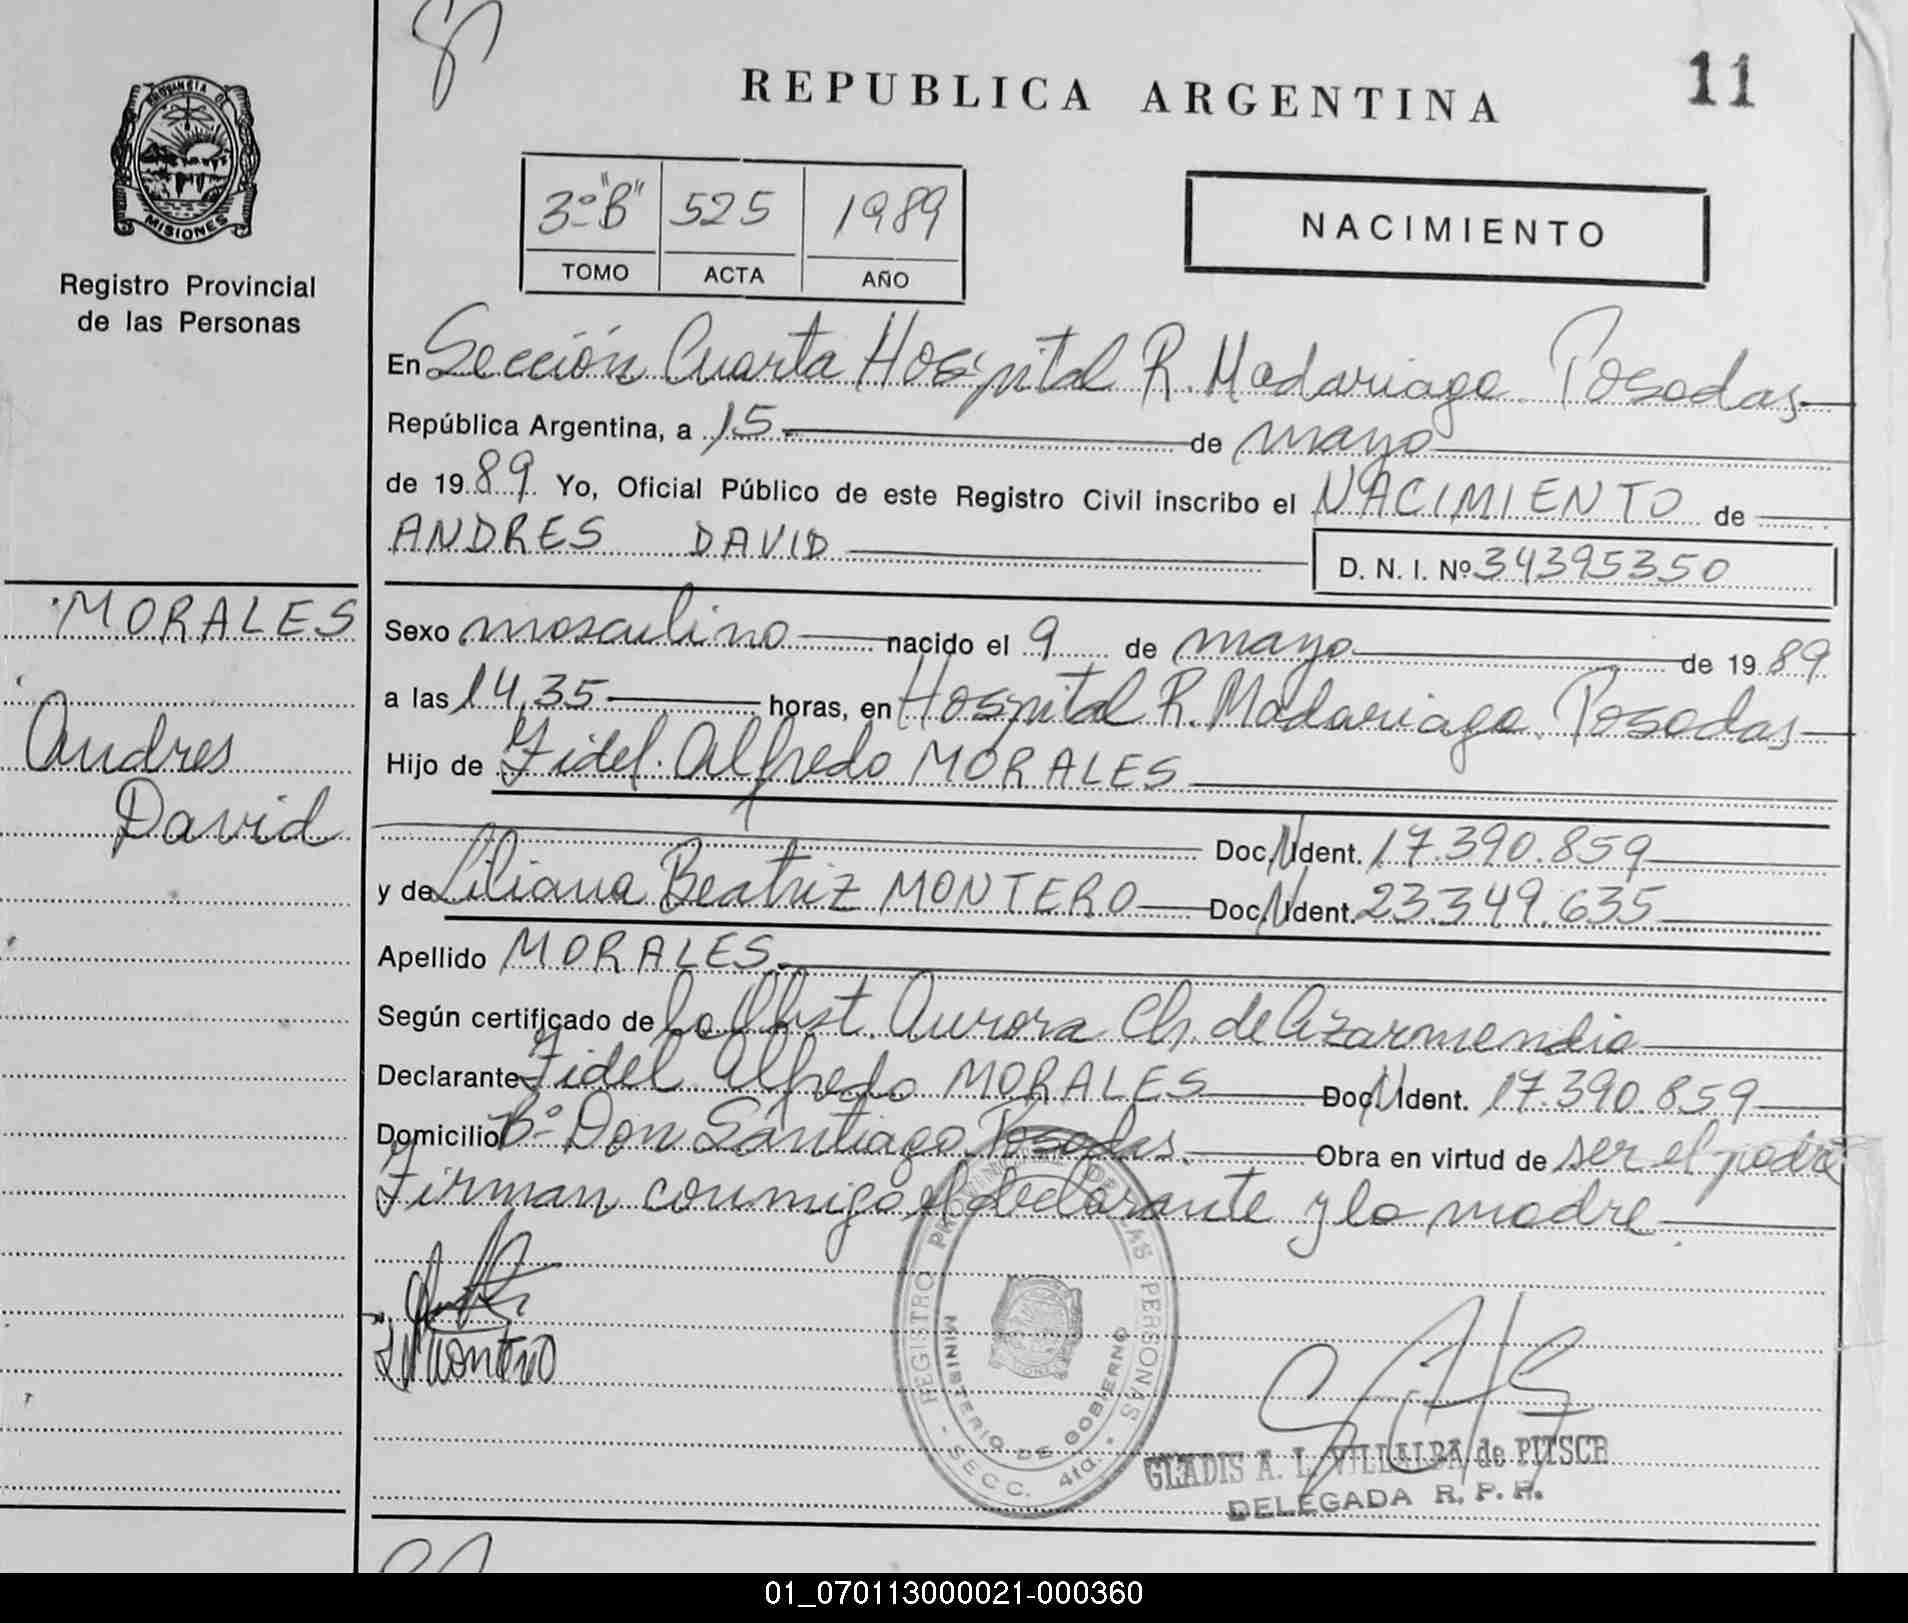 REPUBLICA ARGENTINA
11
PROVINCIA DE
MISIONES
Registro Provincial
de las Personas
3º "B" 525 1989
TOMO ACTA AÑO
NACIMIENTO
En Sección Cuarta Hospital R. Madariaga. Posadas
República Argentina, a 15 de mayo
de 1989. Yo, Oficial Público de este Registro Civil inscribo el NACIMIENTO de
ANDRES DAVID
D. N. I. Nº 34395350
MORALES
Andres
David
Sexo masculino nacido el 9 de mayo de 1989
a las 14,35 horas, en Hospital R. Madariaga. Posadas
Hijo de Fidel Alfredo MORALES
Doc. N Ident. 17.390.859
y de Liliana Beatriz MONTERO Doc. N Ident. 23.349.635
Apellido MORALES
Según certificado de la Obst. Aurora Ch. de Azarmendia
Declarante Fidel Alfredo MORALES Doc. N Ident. 17.390.859
Domicilio Bº Don Santiago Posadas. Obra en virtud de ser el padre
Firman conmigo el declarante y la madre
Montero
REGISTRO PROVINCIAL DE LAS PERSONAS
MINISTERIO DE GOBIERNO
- SECC. 4ta. -
GLADIS A. L. VILLALBA de PITSCH
DELEGADA R. P. P.
01_070113000021-000360